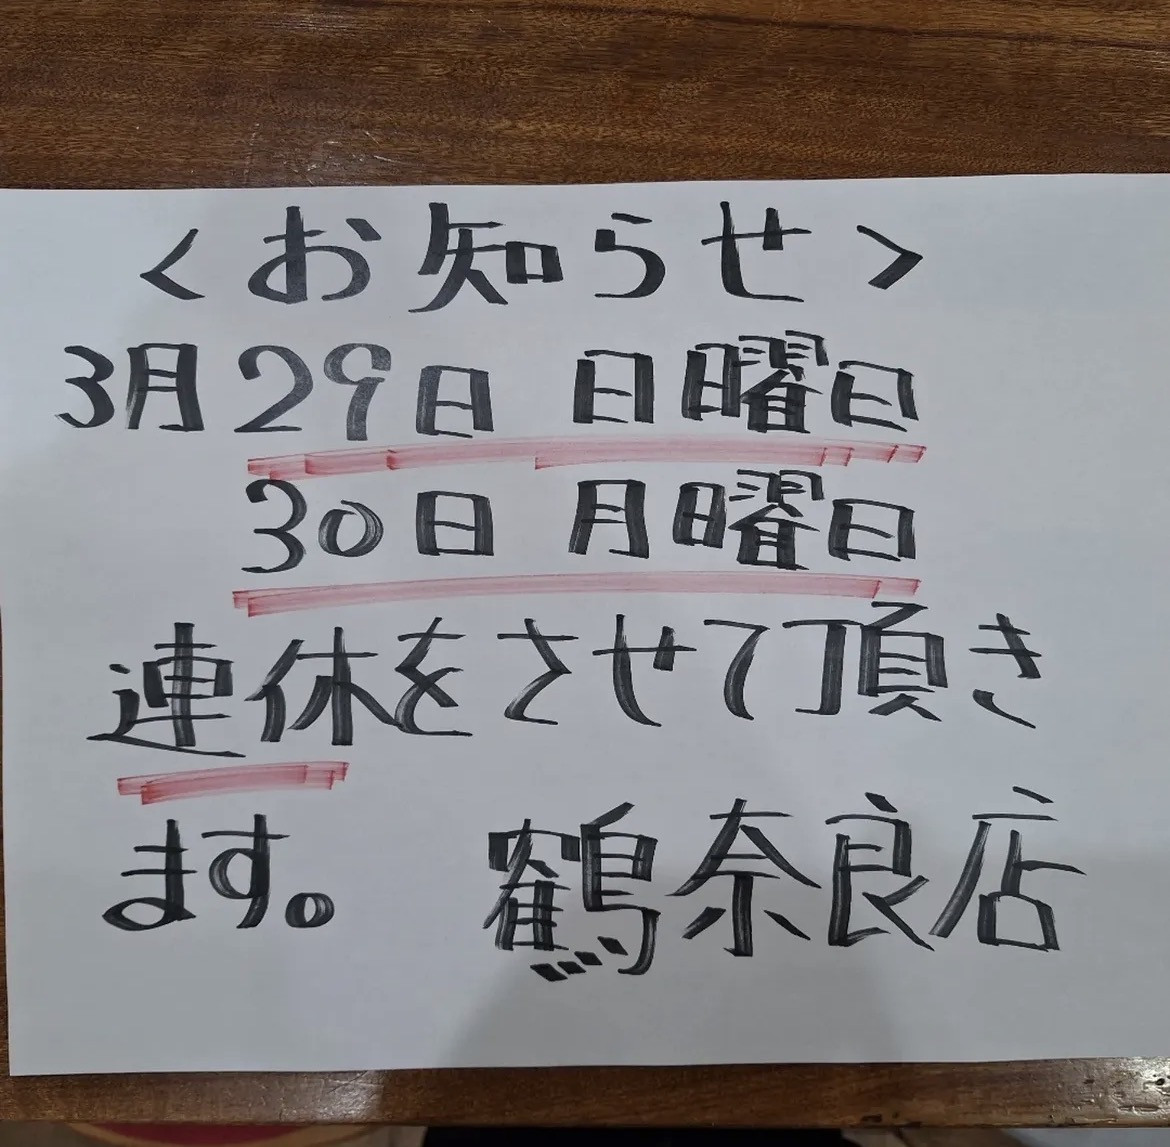 ＜お知らせ＞
3月29日 日曜日
30日 月曜日
連休をさせて頂き
ます。 鶴奈良店